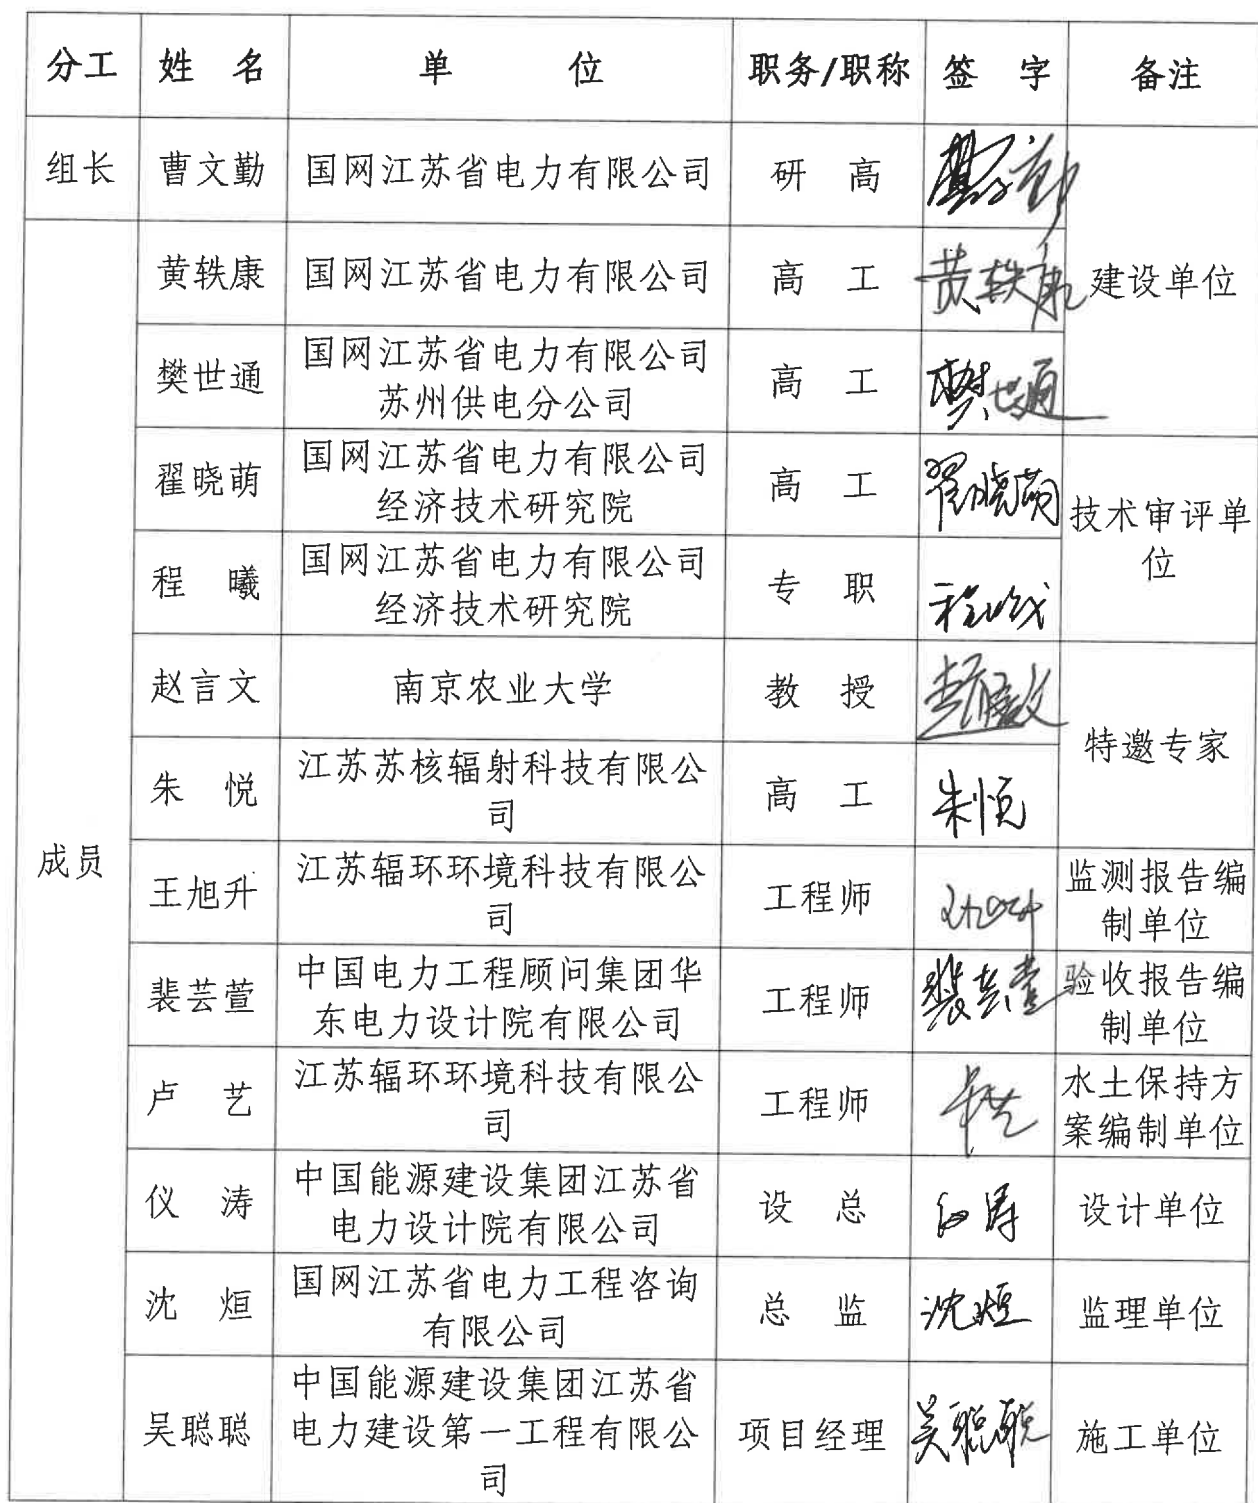 分工 姓 名 单 位 职务/职称 签 字 备注
组长 曹文勤 国网江苏省电力有限公司 研 高
黄轶康 国网江苏省电力有限公司 高 工 黄轶康 建设单位
樊世通 国网江苏省电力有限公司
苏州供电分公司 高 工 樊世通
翟晓萌 国网江苏省电力有限公司
经济技术研究院 高 工 翟晓萌 技术审评单
位
程 曦 国网江苏省电力有限公司
经济技术研究院 专 职
赵言文 南京农业大学 教 授
特邀专家
朱 悦 江苏苏核辐射科技有限公
司 高 工 朱悦
成员
王旭升 江苏辐环环境科技有限公
司 工程师 监测报告编
制单位
裴芸萱 中国电力工程顾问集团华
东电力设计院有限公司 工程师 裴芸萱 验收报告编
制单位
卢 艺 江苏辐环环境科技有限公
司 工程师 水土保持方
案编制单位
仪 涛 中国能源建设集团江苏省
电力设计院有限公司 设 总 仪涛 设计单位
沈 烜 国网江苏省电力工程咨询
有限公司 总 监 沈烜 监理单位
吴聪聪 中国能源建设集团江苏省
电力建设第一工程有限公
司 项目经理 吴聪聪 施工单位